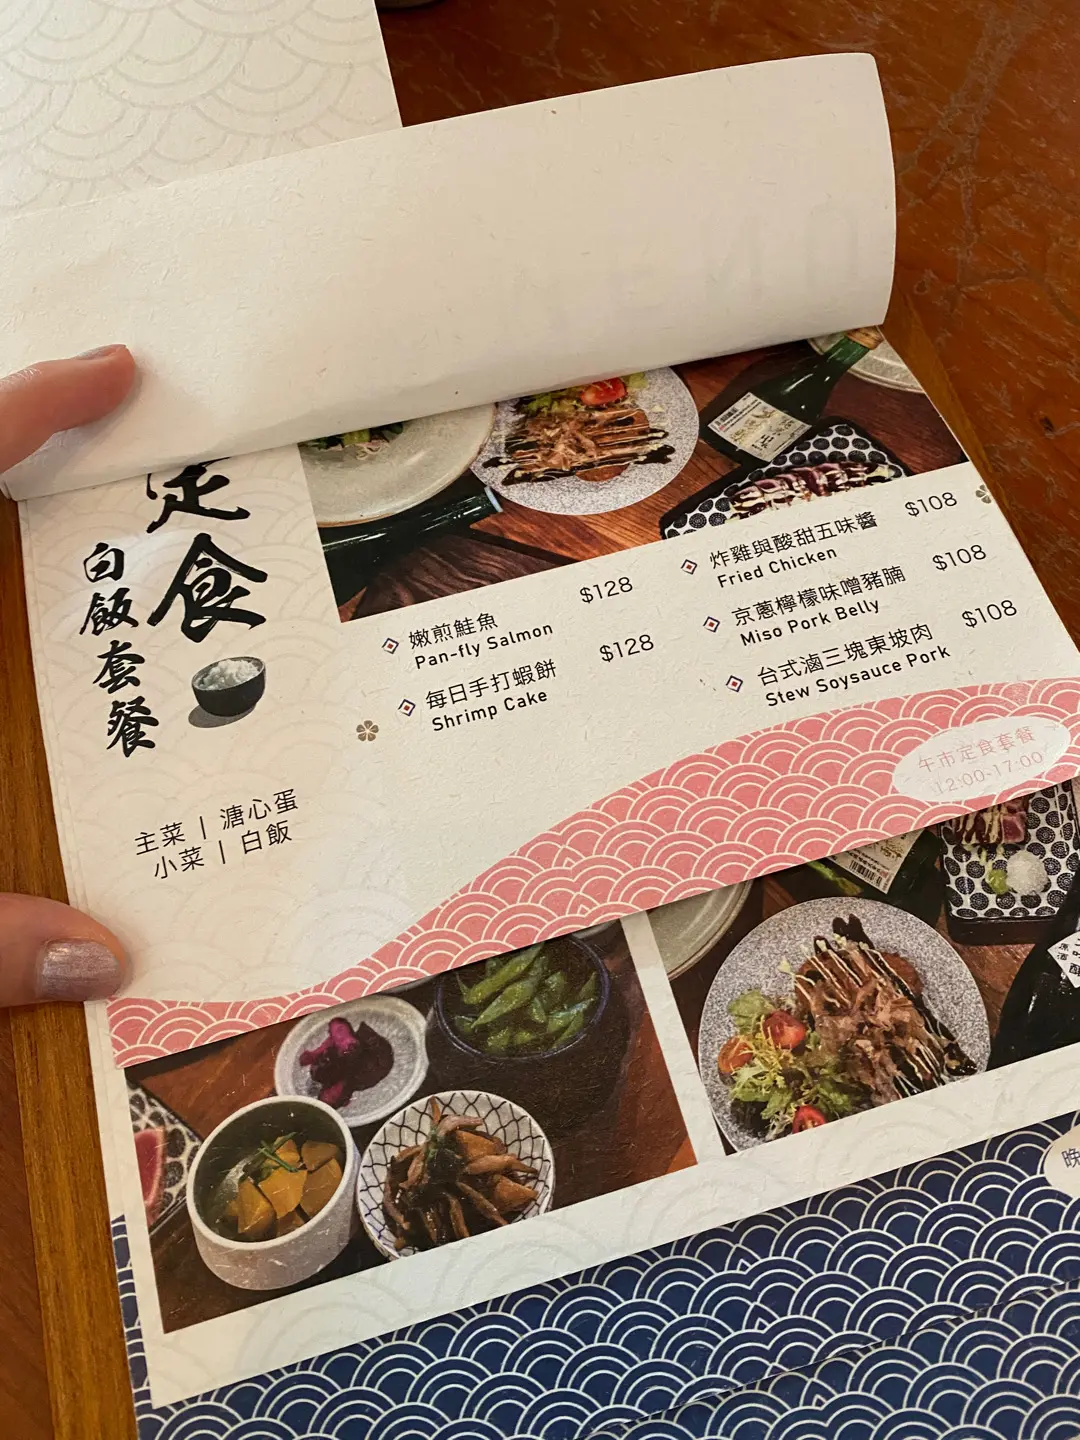 定食
白飯套餐
主菜 | 溏心蛋
小菜 | 白飯
嫩煎鮭魚 $128
Pan-fly Salmon
每日手打蝦餅 $128
Shrimp Cake
炸雞與酸甜五味醬 $108
Fried Chicken
京蔥檸檬味噌豬腩 $108
Miso Pork Belly
台式滷三塊東坡肉 $108
Stew Soysauce Pork
午市定食套餐
12:00-17:00
晚